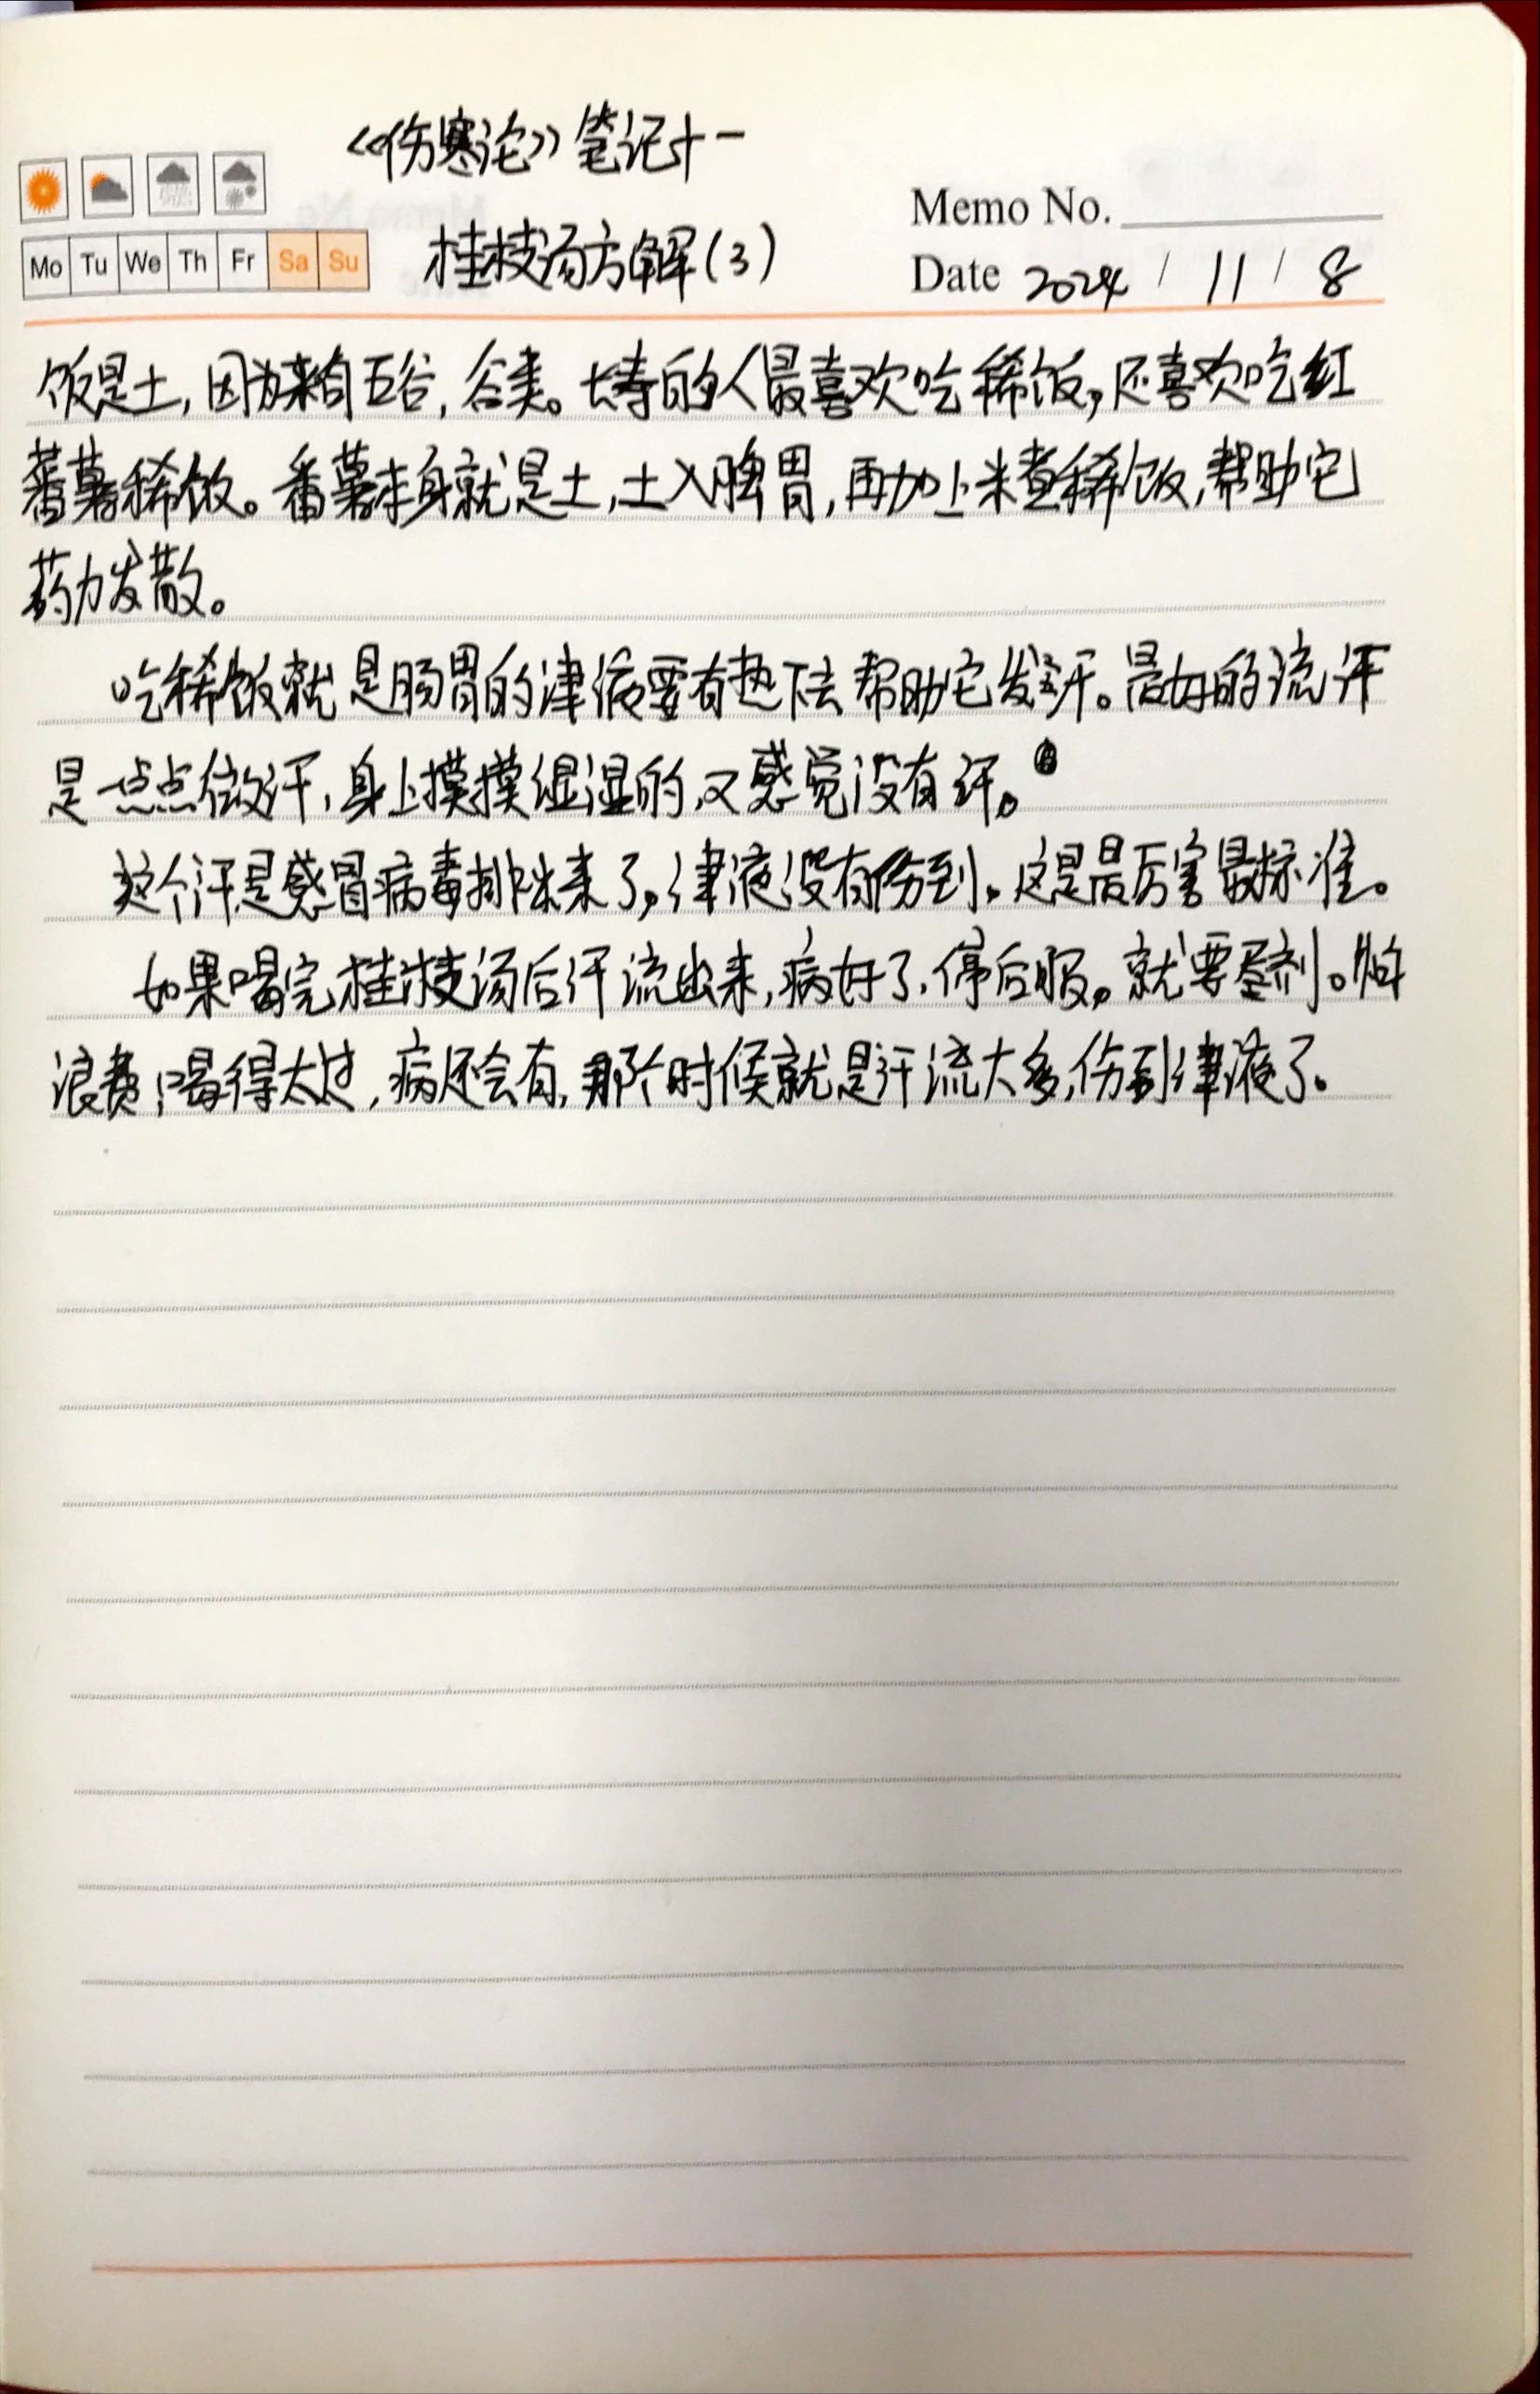 《伤寒论》笔记十一
Memo No.
Mo Tu We Th Fr Sa Su
桂枝汤方解(3)
Date 2024 / 11 / 8
饭是土,因为来自五谷,谷类。长寿的人最喜欢吃稀饭,还喜欢吃红
蕃薯稀饭。番薯本身就是土,土入脾胃,再加上米煮稀饭,帮助它
药力发散。
吃稀饭就是肠胃的津液要有热下去帮助它发汗。最好的流汗
是一点点微汗,身上摸摸湿湿的,又感觉没有汗。
这个汗是感冒病毒排出来了,津液没有伤到。这是最厉害最标准。
如果喝完桂枝汤后汗流出来,病好了,停后服。就要尽剂。怕
浪费,喝得太过,病还会有,那个时候就是汗流太多,伤到津液了。